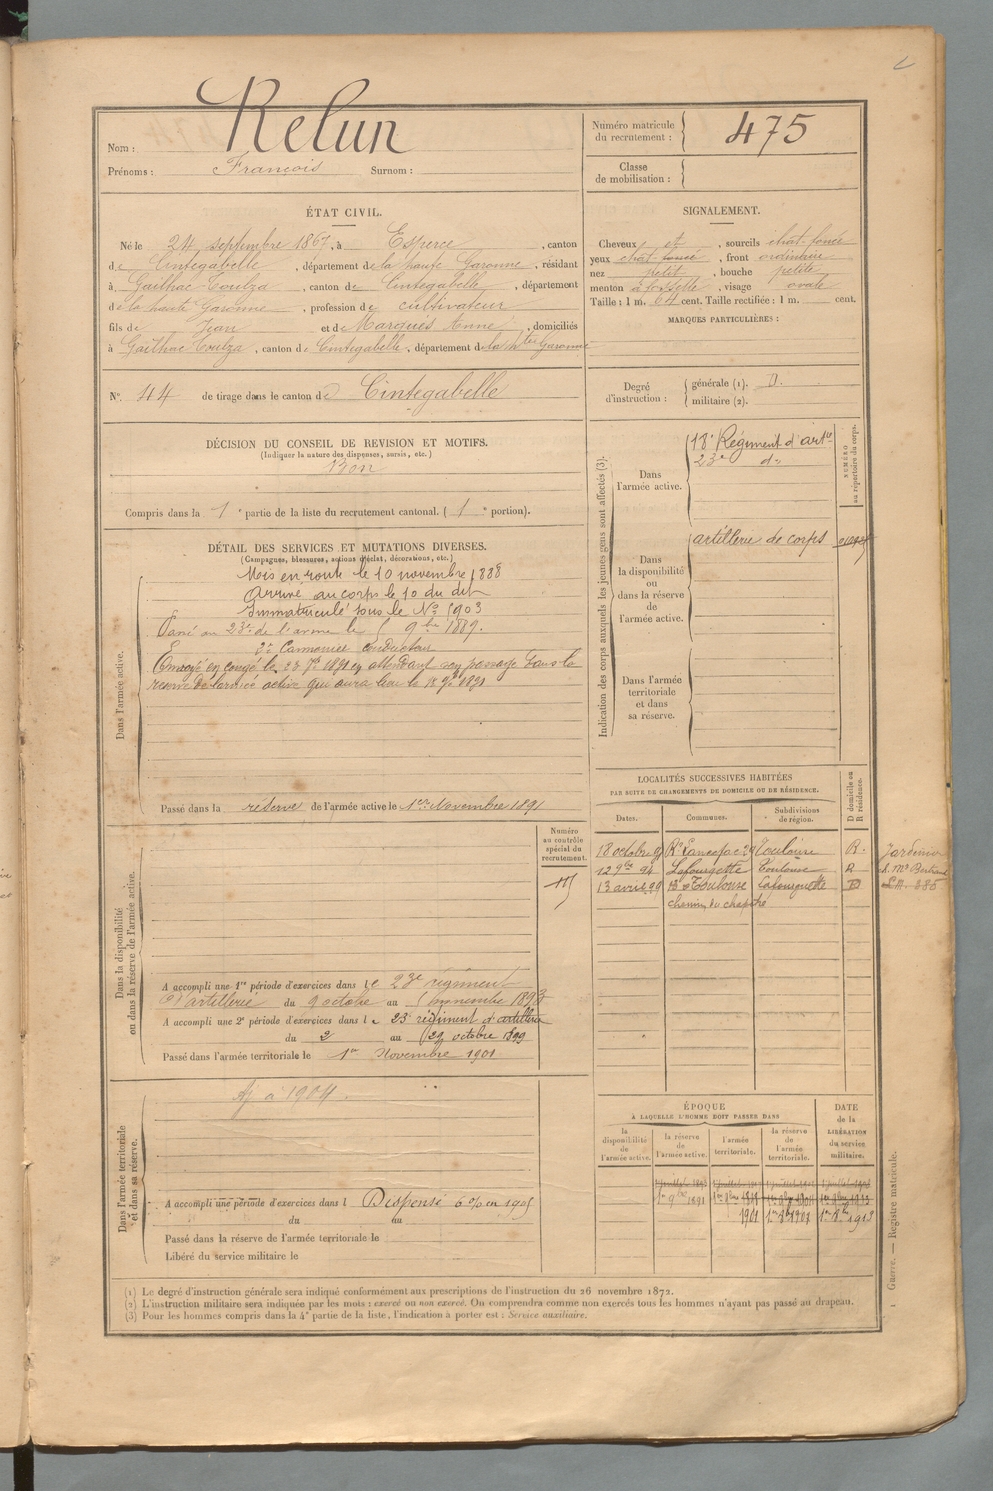 Relun
Nom :
Prénoms : François Surnom :
Numéro matricule du recrutement : 475
Classe de mobilisation :
ÉTAT CIVIL.
Né le 24 septembre 1867, à Esperce, canton
de Cintegabelle, département de la haute Garonne, résidant
à Gailhac-Toulza, canton de Cintegabelle, département
de la haute Garonne, profession de cultivateur
fils de Jean et de Marquès Anne, domiciliés
à Gailhac Toulza, canton de Cintegabelle, département de la hte Garonne
SIGNALEMENT.
Cheveux et, sourcils chat-foncé
yeux chat foncé, front ordinaire
nez petit, bouche petite
menton à fossette, visage ovale
Taille : 1 m. 64 cent. Taille rectifiée : 1 m. cent.
MARQUES PARTICULIÈRES :
N° 44 de tirage dans le canton de Cintegabelle
Degré d'instruction : générale (1). D.
militaire (2).
DÉCISION DU CONSEIL DE REVISION ET MOTIFS.
(Indiquer la nature des dispenses, sursis, etc.)
Bon
Compris dans la 1e partie de la liste du recrutement cantonal. ( 1e portion).
DÉTAIL DES SERVICES ET MUTATIONS DIVERSES.
(Campagnes, blessures, actions d'éclat, décorations, etc.)
Dans l'armée active.
Mis en route le 10 novembre 1888
Arrivé au corps le 10 du dit
Immatriculé sous le N° 1903
Passé au 23e de l'arme le 9bre 1889.
2e Cannonier conducteur
Envoyé en congé le 23 7bre 1891 en attendant son passage dans la
reserve de l'armée active qui aura lieu le 1er 9bre 1891
Passé dans la réserve de l'armée active le 1er Novembre 1891
Indication des corps auxquels les jeunes gens sont affectés (3).
NUMÉRO au répertoire du corps.
Dans l'armée active.
18e Régiment d'artie
23e do
Dans la disponibilité ou dans la réserve de l'armée active.
artillerie de corps
Dans l'armée territoriale et dans sa réserve.
LOCALITÉS SUCCESSIVES HABITÉES
PAR SUITE DE CHANGEMENTS DE DOMICILE OU DE RÉSIDENCE.
D domicile ou R résidence.
Dates. Communes. Subdivisions de région.
18 octobre Toulouse R.
12 9bre 94 Lafourgette Toulouse R
13 avril 99 Toulouse Lafourguette D
chemin du chapitre
Jardinier
Dans la disponibilité ou dans la réserve de l'armée active.
Numéro au contrôle spécial du recrutement.
A accompli une 1re période d'exercices dans le 23e régiment
d'artillerie du 9 octobre au 5 novembre 1893
A accompli une 2e période d'exercices dans le 23e régiment d'artillerie
du 2 au 29 octobre 1899
Passé dans l'armée territoriale le 1er Novembre 1901
Dans l'armée territoriale et dans sa réserve.
Aj à 1904.
A accompli une période d'exercices dans l Dispensé 6 % en 1905
du au
Passé dans la réserve de l'armée territoriale le
Libéré du service militaire le
ÉPOQUE
À LAQUELLE L'HOMME DOIT PASSER DANS
la disponibilité de l'armée active.
la réserve de l'armée active.
l'armée territoriale.
la réserve de l'armée territoriale.
DATE de la LIBÉRATION du service militaire.
1er 9bre 1891
1901 1er 8bre 1907 1er 8bre 1913
(1) Le degré d'instruction générale sera indiqué conformément aux prescriptions de l'instruction du 26 novembre 1872.
(2) L'instruction militaire sera indiquée par les mots : exercé ou non exercé. On comprendra comme non exercés tous les hommes n'ayant pas passé au drapeau.
(3) Pour les hommes compris dans la 4e partie de la liste, l'indication à porter est : Service auxiliaire.
1 Guerre. — Registre matricule.